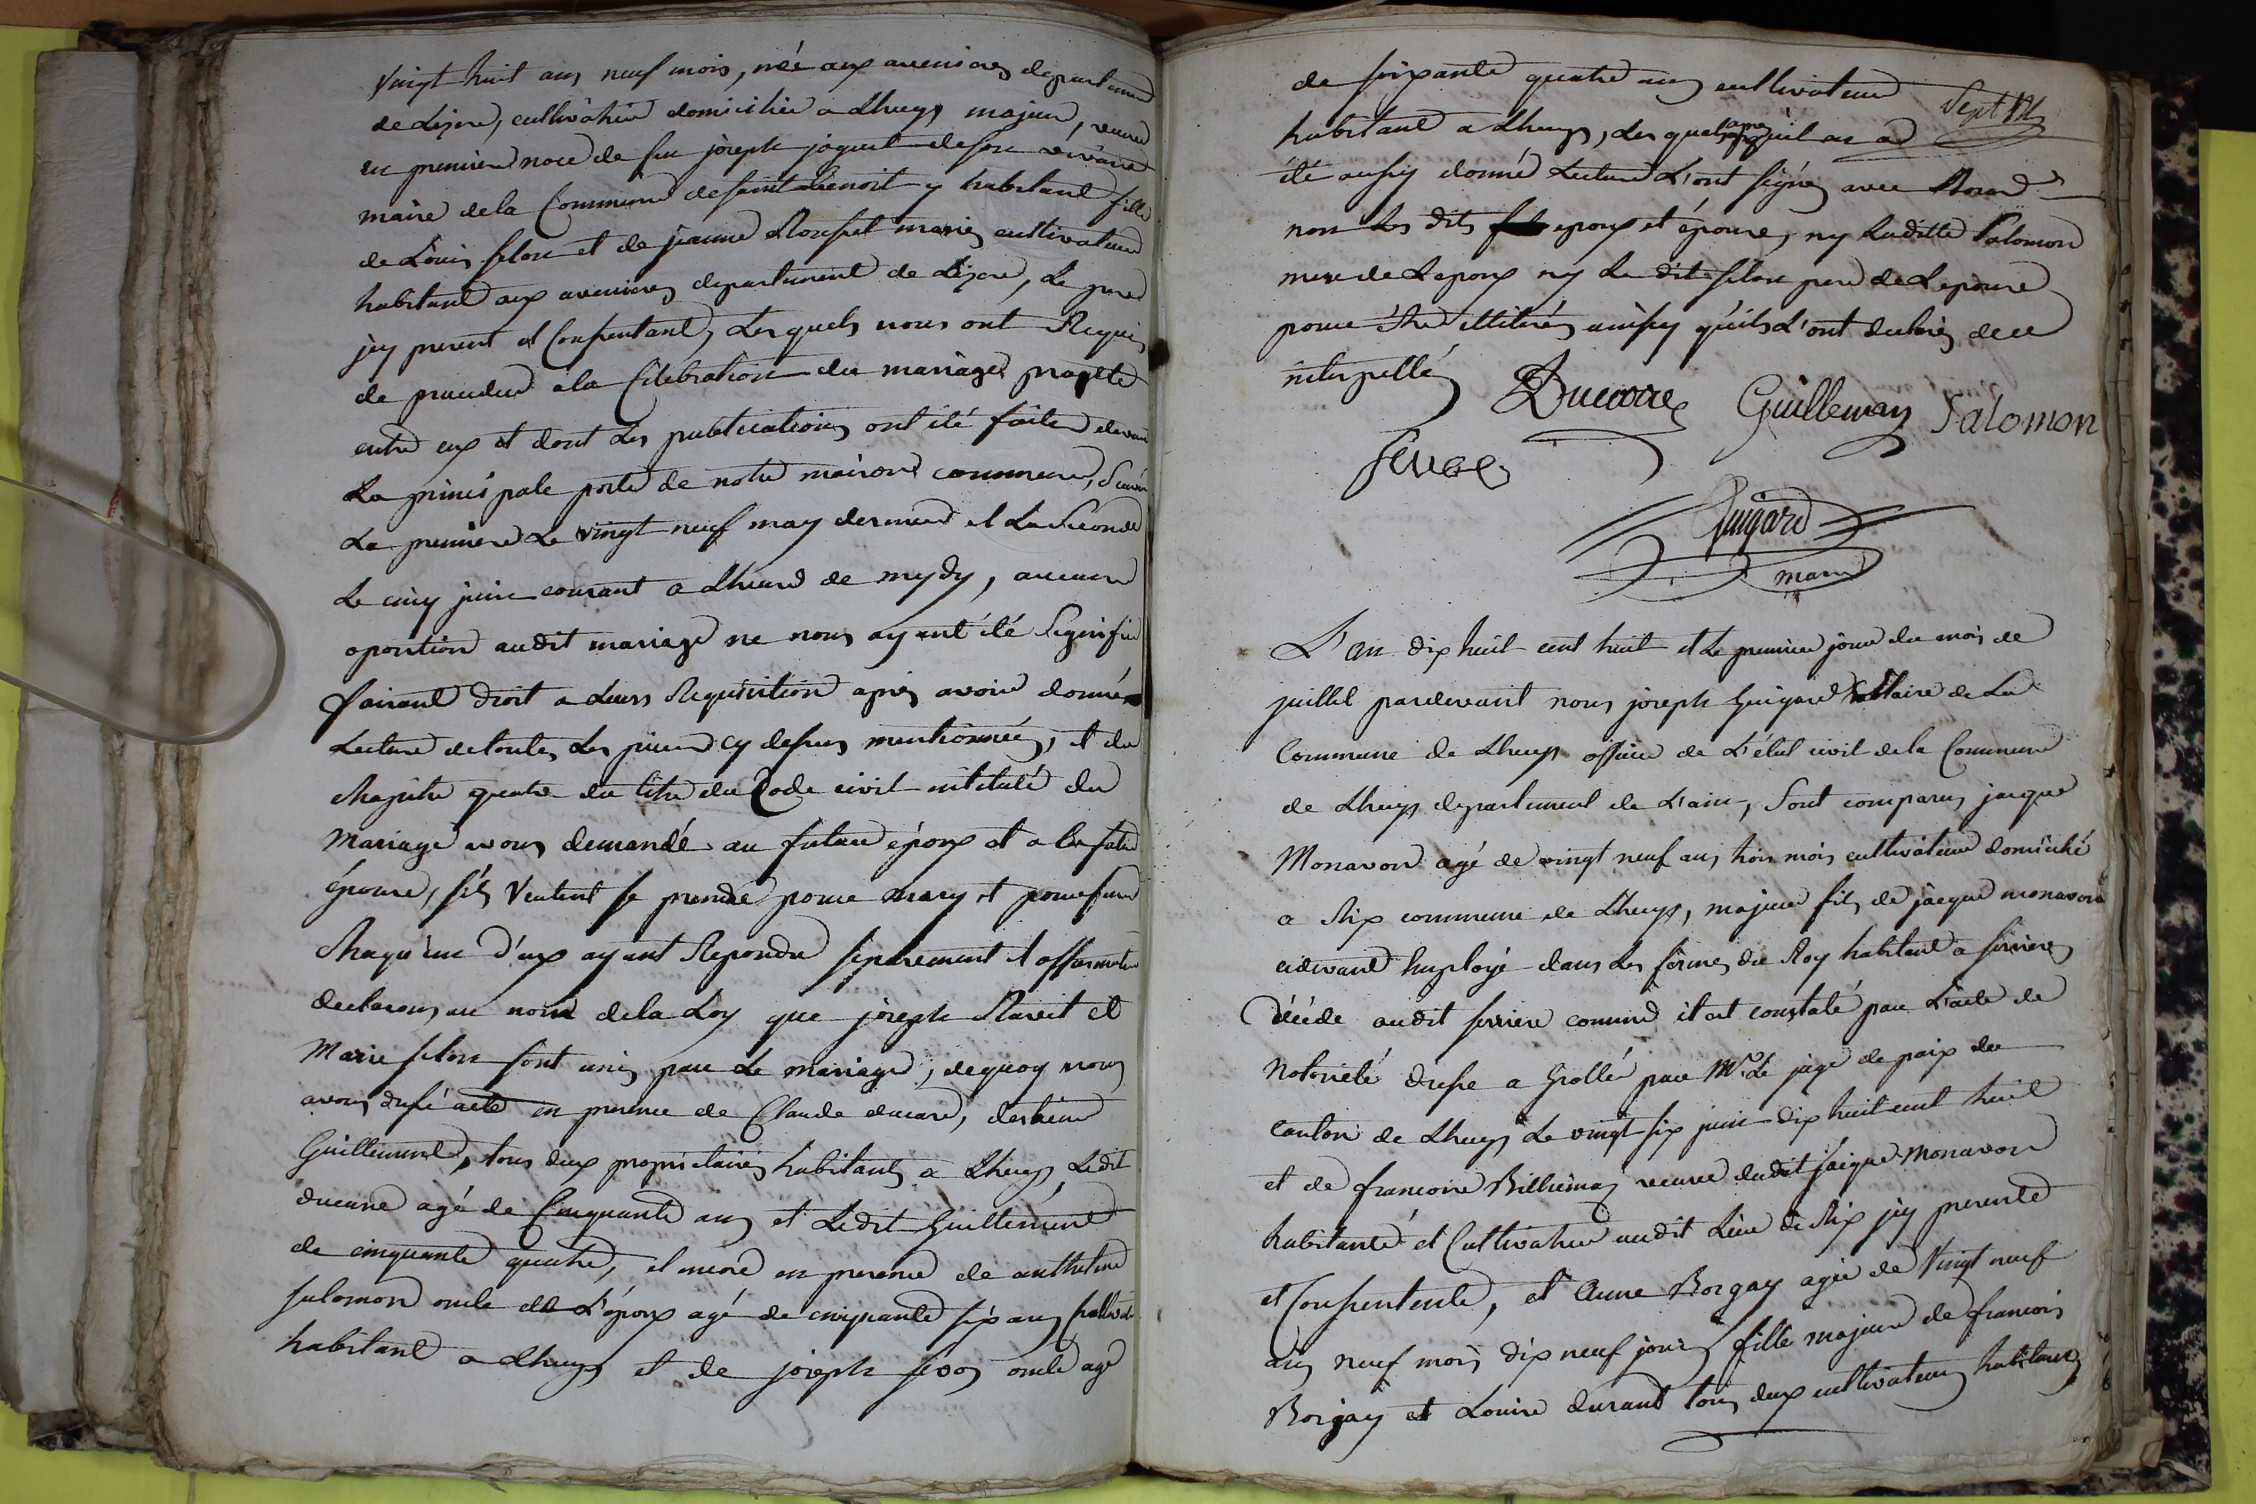 vingt huit ans neuf mois, née aux avenieres departement
de Lizere, cultivatrice domiciliée a Lhuys majeur, veuve
en premiere noce de feu joseph joguet de son vivant
maire de la Commune de saint Benoit y habitant fille
de Louis selon et de jeanne Roussel mariés cultivateurs
habitant aux avenieres departement de Lizere, Le pere
jcy present et Consentant, Lesquels nous ont Requis
de proceder a la Celebration du mariage projette
entre eux et dont Les publications ont été faites devant
La principale porte de notre maison commune, Scavoir
La premiere Le vingt neuf may dernier et La Seconde
Le cinq juin courant a Lheure de mydy, aucune
oposition audit mariage ne nous ayant été Signifié
faisant droit a Leurs Requisition apres avoir donné
Lecture de toutes Les pieces cy dessus mentionnées, et du
Chapitre quatre du titre du Code civil intitulé du
Mariage avons demandé au futur époux et a la future
épouse, s'ils Veulent se prendre pour mary et pour femme
Chaqu'un d'eux ayant Repondu separement et affirmative
declarons au nom de la Loy que joseph Ravit et
Marie selon sont unis par Le mariage, dequoy nous
avons dressé acte en presence de Claude ducarre,
Guillemend, tous deux proprietaires habitants a Lhuys Ledit
ducarre agé de Cinquante ans et Ledit Guillemend
de cinquante quatre, et encore en presence de anthelme
salomon oncle de L'époux agé de cinquante six ans
habitant a Lhuys et de joseph oncle agé
de soixante quatre ans cultivateur
Sept
habitant a Lhuys, Les quels apres qu'il en a
été aussy donné Lecture L'ont signés avec Nous
non Les dits epoux et épouse, ny Laditte Salomon
mere de Lepoux ny Le dit selon pere de Lepouse
pour être illiterés ainsy qu'ils L'ont declarés de ce
interpellé
Ducarre Guilleman Salomon
Guigard
maire
L'an dix huit cent huit et Le premier jour du mois de
juillet pardevant nous joseph Guigard Maire de La
Commune de Lhuys officier de L'état civil de la Commune
de Lhuys departement de L'ain, Sont comparus jacque
Monavon agé de vingt neuf ans trois mois cultivateur domicilié
a Rix commune de Lhuys, majeur fils de jacque monavon
cidevant Employé dans Les fermes du Roy habitant a serrieres
Décédé audit serriere comme il est constaté par L'acte de
Notorieté dressé a Grolée par Mr. Le juge de paix du
canton de Lhuys Le vingt six juin dix huit cent huit
et de francoise Billiemaz veuve dudit jacque Monavon
habitante et Cultivatrice audit Lieu de Rix jcy presente
et Consentente, et Anne Borgay agée de Vingt neuf
ans neuf mois dix neuf jours fille majeure de francois
Borgay et Louise durand tous deux cultivateurs habitans